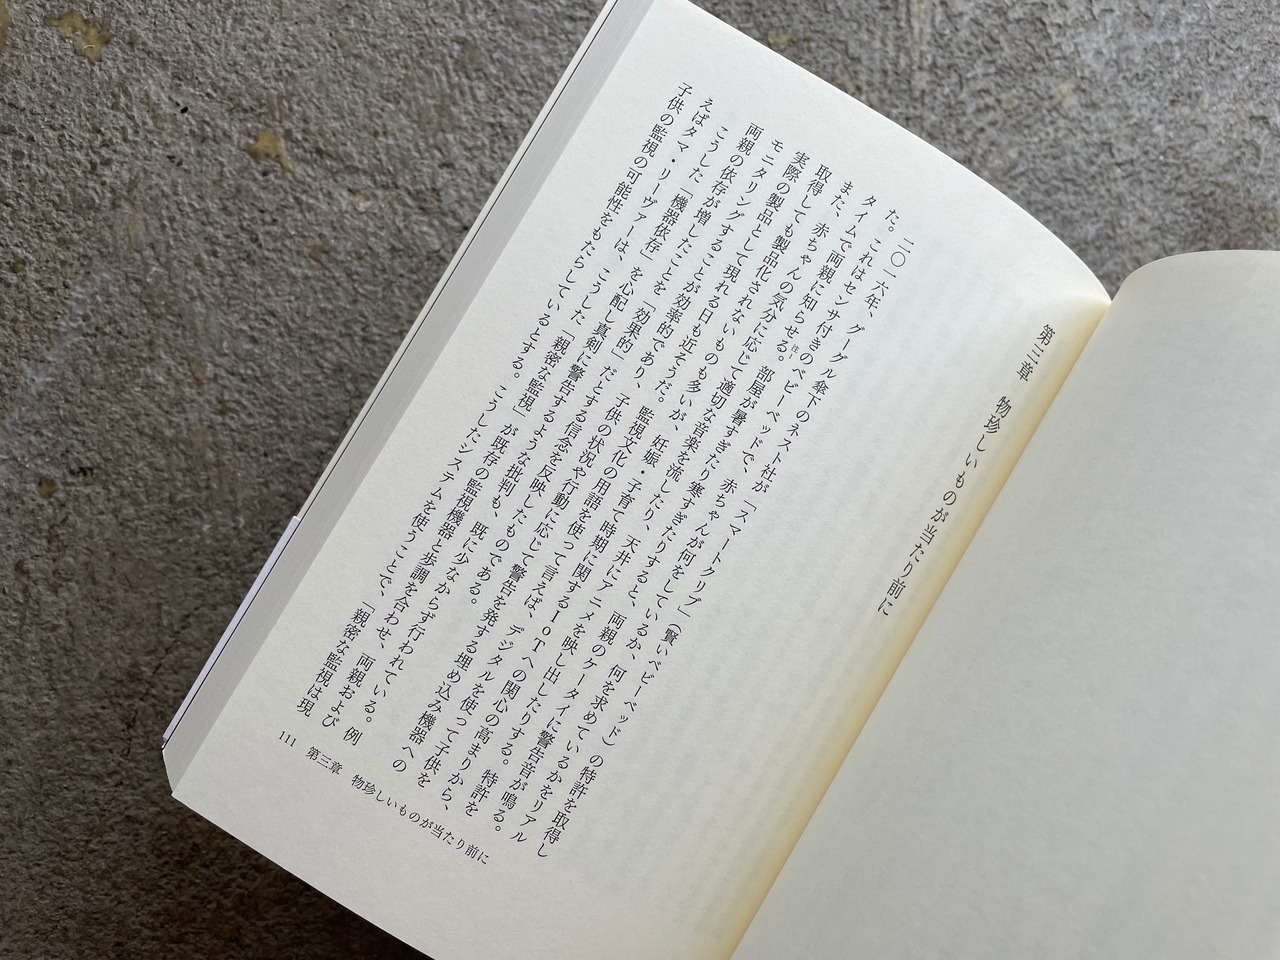 第三章　物珍しいものが当たり前に
二〇一六年、グーグル傘下のネスト社が「スマートクリブ」（賢いベビーベッド）の特許を取得し
た。これはセンサ付きのベビーベッドで、赤ちゃんが何をしているか、何を求めているかをリアル
タイムで両親に知らせる。注1部屋が暑すぎたり寒すぎたりすると、両親のケータイに警告音が鳴る。
また、赤ちゃんの気分に応じて適切な音楽を流したり、天井にアニメを映し出したりする。特許を
取得しても製品化されないものも多いが、妊娠・子育て時期に関するIoTへの関心の高まりから、
実際の製品として現れる日も近そうだ。監視文化の用語を使って言えば、デジタルを使って子供を
モニタリングすることが効率的であり、子供の状況や行動に応じて警告を発する埋め込み機器への
両親の依存が増したことを「効果的」だとする信念を反映したものである。
こうした「機器依存」を心配し真剣に警告するような批判も、既に少なからず行われている。例
えばタマ・リーヴァーは、こうした「親密な監視」が既存の監視機器と歩調を合わせ、両親および
子供の監視の可能性をもたらしているとする。こうしたシステムを使うことで、「親密な監視は現
111　第三章　物珍しいものが当たり前に